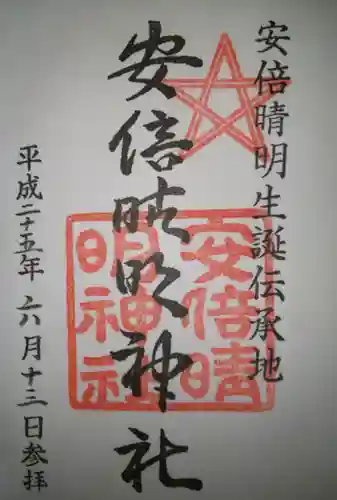 安倍晴明生誕伝承地
安倍晴明神社
安倍晴明神社
平成二十五年 六月十三日参拝